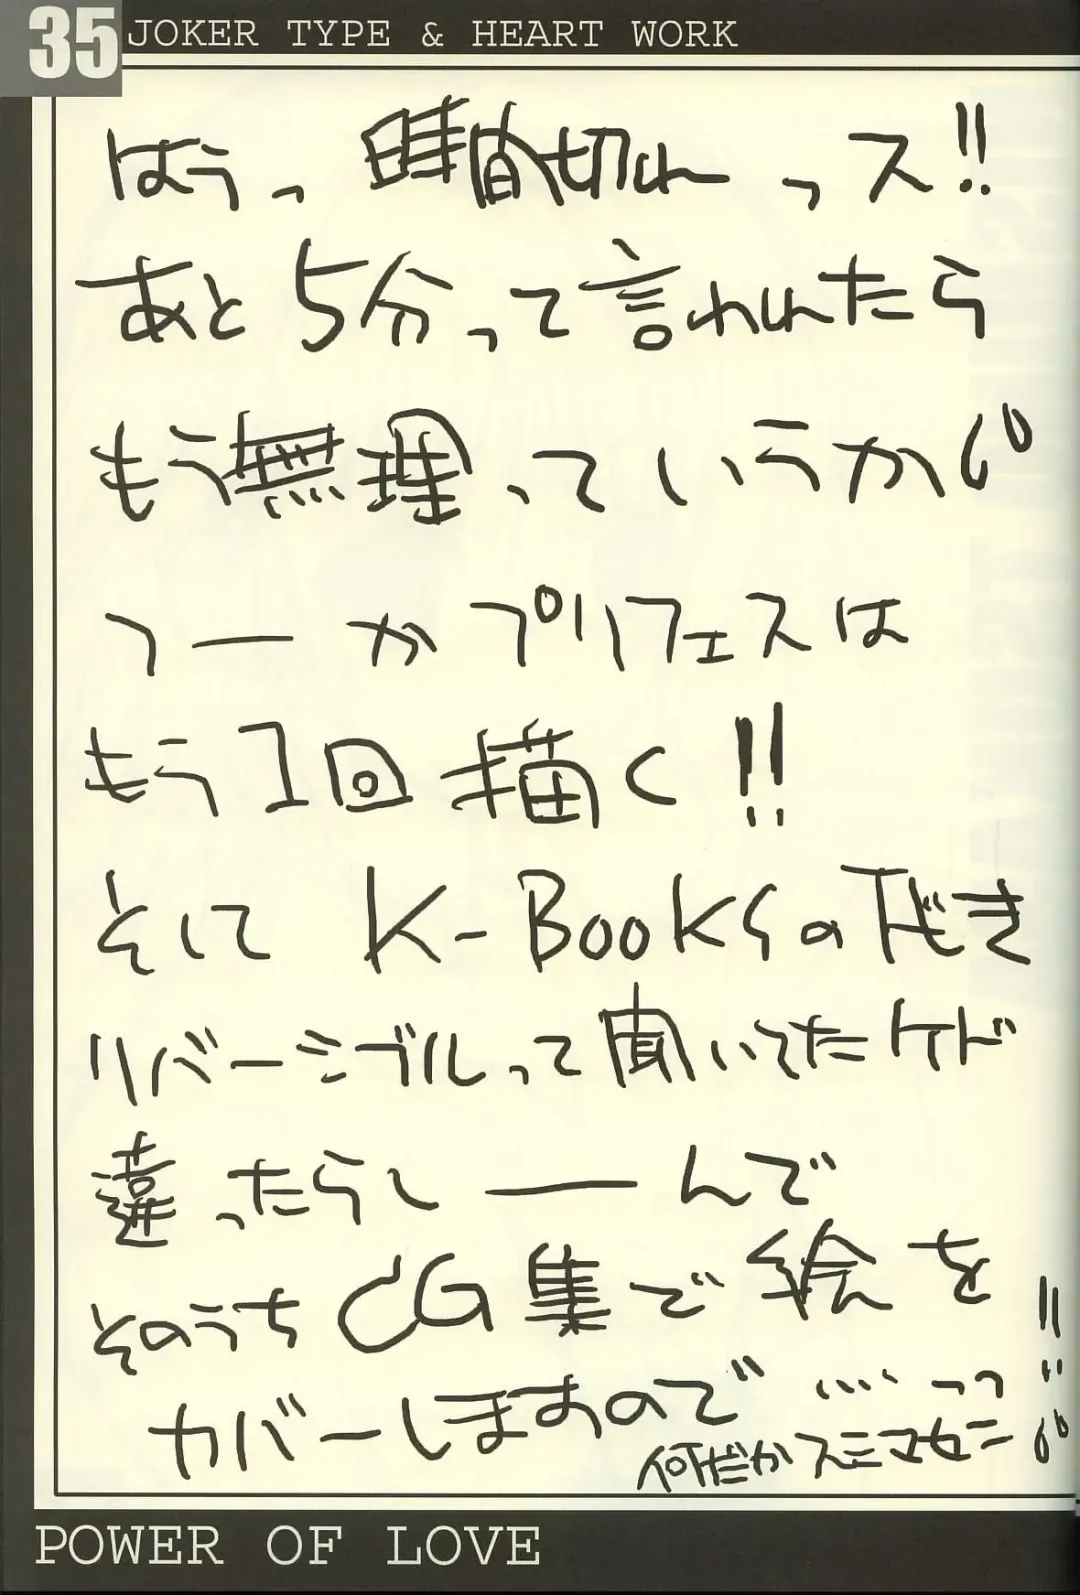 35 JOKER TYPE & HEART WORK
はうっ 時間切れっス!!
あと5分って言われたら
もう無理っていうか
つーかプリフェスは
もう1回描く!!
そして K-BOOKSの下だき
リバーシブルって聞いてたケド
違ったらし――んで
そのうちCG集で絵を
カバーしますので…っっ!!
何だかスミマセニ
POWER OF LOVE